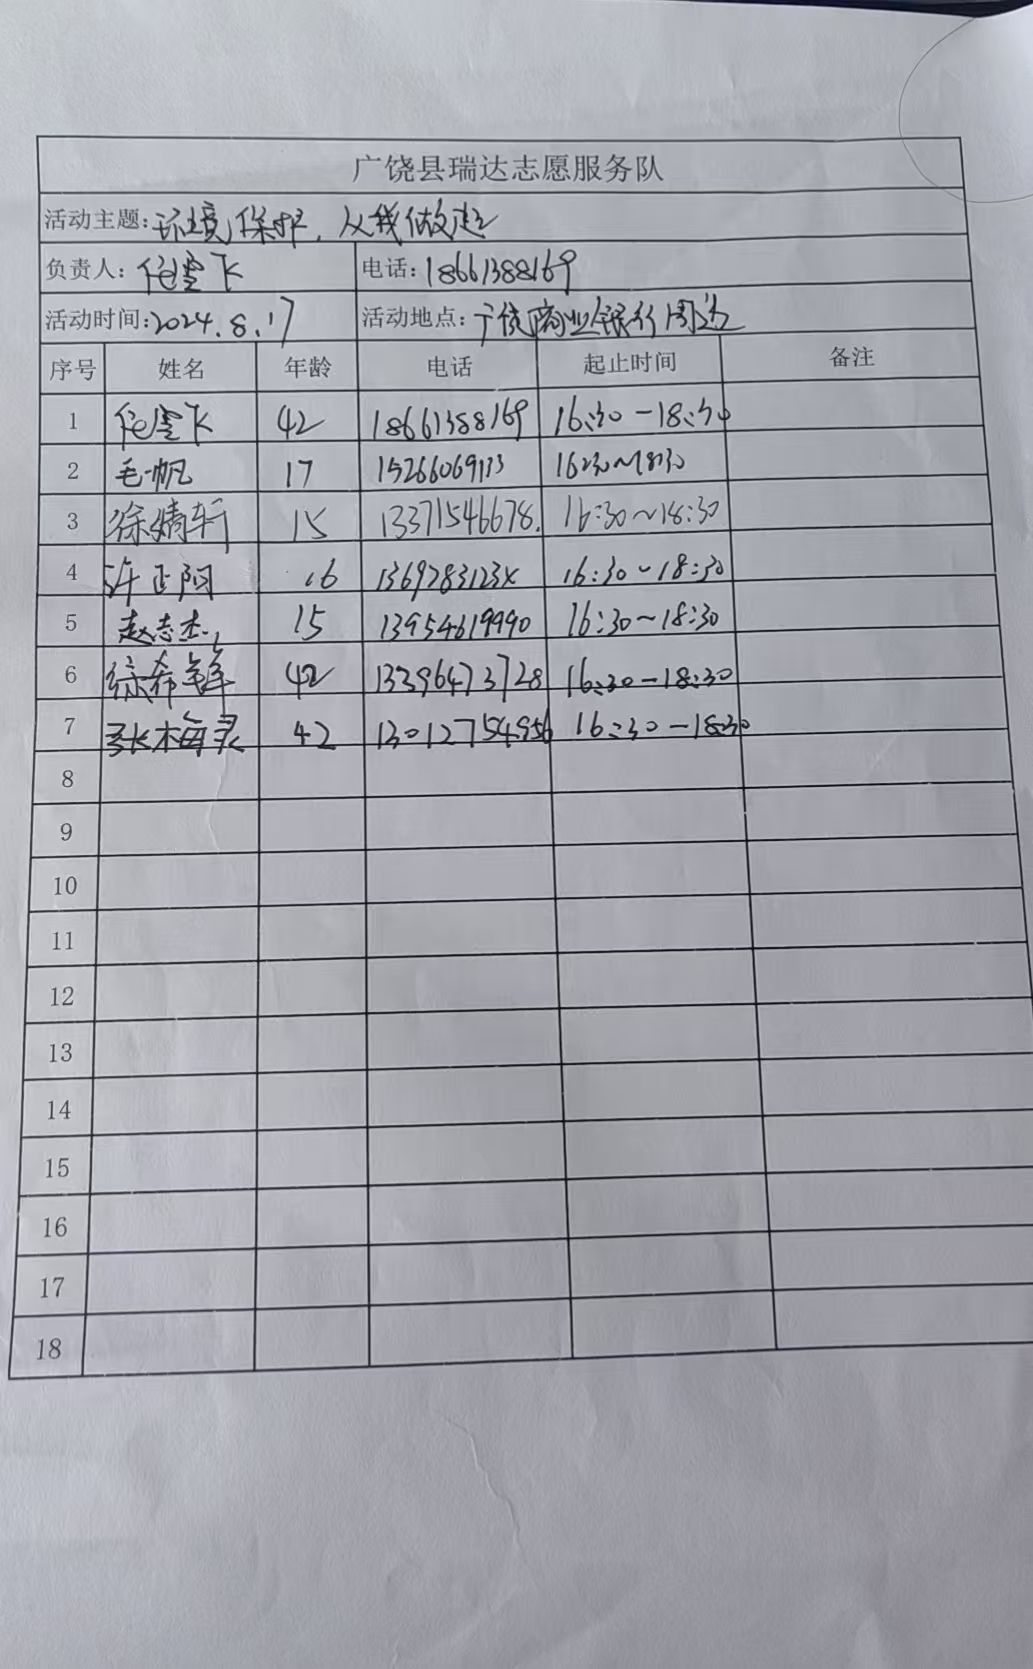 广饶县瑞达志愿服务队
活动主题：环境保护，从我做起
负责人：任雪飞 电话：18661388169
活动时间：2024.8.17 活动地点：广饶商业银行周边
序号 姓名 年龄 电话 起止时间 备注
1 任雪飞 42 18661388169 16:30-18:30
2 毛一帆 17 15266069113 16:30~18:30
3 徐婧轩 15 13371546678. 16:30~18:30
4 许正阳 16 1369783123X 16:30~18:30
5 赵志杰 15 13954619990 16:30~18:30
6 徐希锋 42 13396473728 16:30-18:30
7 张梅灵 42 13012754956 16:30-18:30
8
9
10
11
12
13
14
15
16
17
18